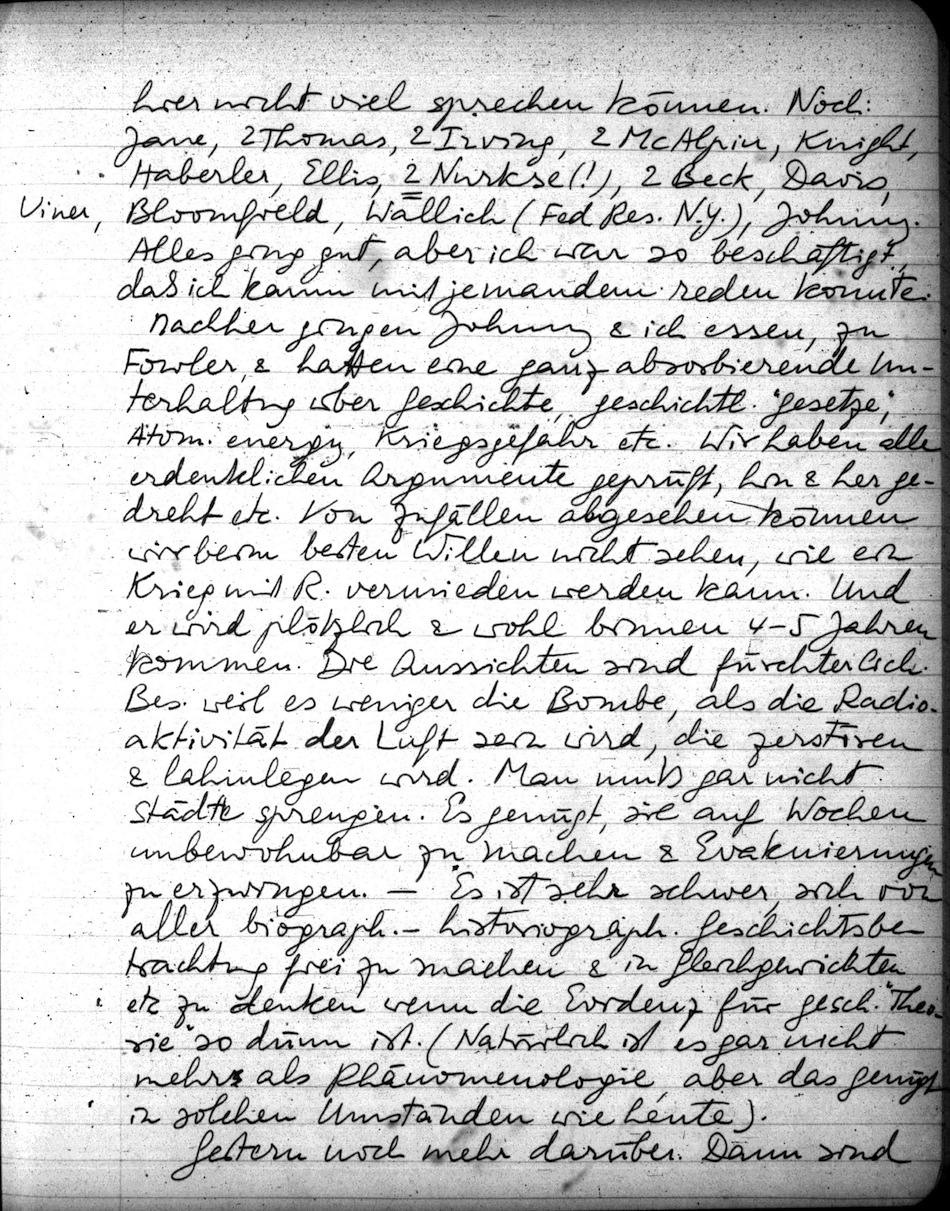 hier nicht viel sprechen können. Noch:
Jane, 2 Thomas, 2 Irving, 2 McAlpin, Knight,
Haberler, Ellis, 2 Nurkse(!), 2 Beck, Davis,
Viner, Bloomfield, Wallich (Fed Res. N.Y.), Johnny.
Alles ging gut, aber ich war so beschäftigt,
daß ich kaum mit jemandem reden konnte.
Nachher gingen Johnny & ich essen, zu
Fowler, & hatten eine ganz absorbierende Un-
terhaltng über Geschichte, geschichtl. "Gesetze",
Atom. energy, Kriegsgefahr etc. Wir haben alle
erdenklichen Argumente geprüft, hin & her ge-
dreht etc. Von Zufällen abgesehen können
wir beim besten Willen nicht sehen, wie ein
Krieg mit R. vermieden werden kann. Und
er wird plötzlich & wohl binnen 4-5 Jahren
kommen. Die Aussichten sind fürchterlich.
Bes. weil es weniger die Bombe, als die Radio-
aktivität der Luft sein wird, die zerstören
& lahmlegen wird. Man muß gar nicht
Städte sprengen. Es genügt, sie auf Wochen
unbewohnbar zu machen & Evakuierungen
zu erzwingen. — Es ist sehr schwer, sich von
aller biograph.- historiograph. Geschichtsbe-
trachtng frei zu machen & in Gleichgewichten
etc zu denken wenn die Evidenz für gesch. "Theo-
rie" so dünn ist. (Natürlich ist es gar nicht
mehr als Phänomenologie, aber das genügt
in solchen Umständen wie heute).
Gestern noch mehr darüber. Dann sind